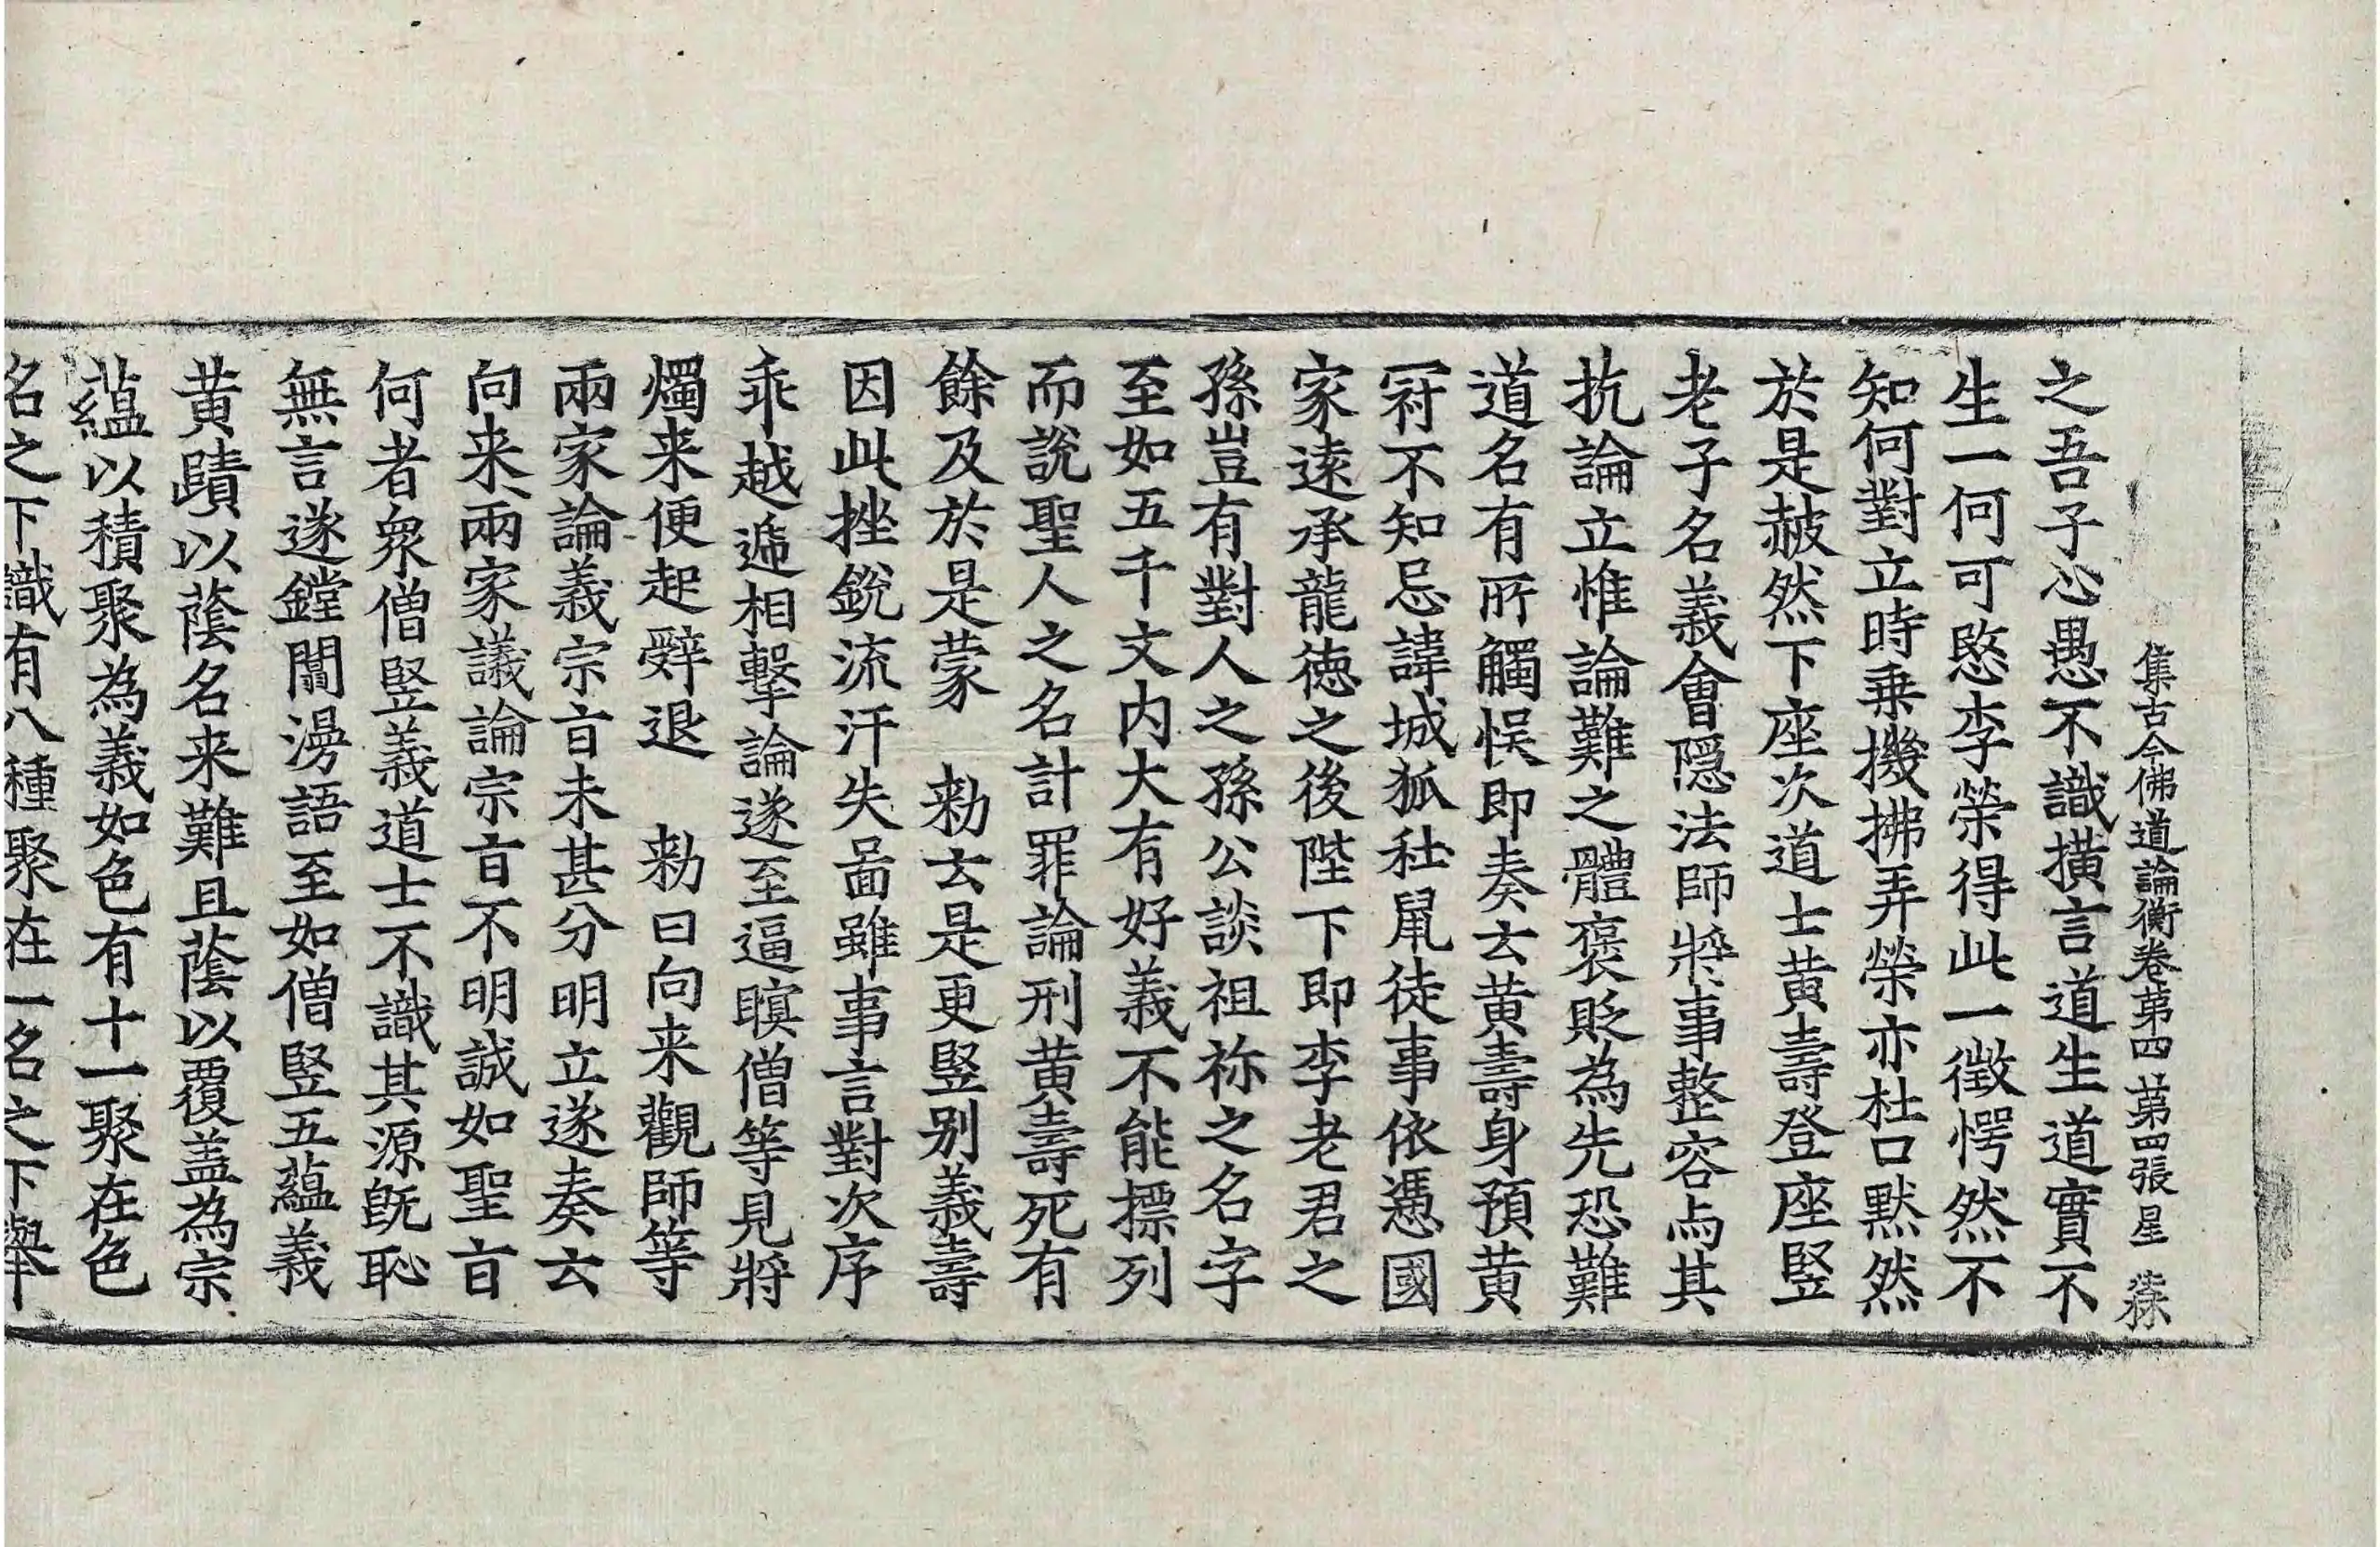 集古今佛道論衡卷第四 第四張 星
之吾子心愚不識橫言道生道實不
生一何可愍李榮得此一徵愕然不
知何對立時乗機拂弄榮亦杜口默然
於是赧然下座次道士黄壽登座竪
老子名義會隱法師將事整容与其
抗論立惟論難之體褒貶為先恐難
道名有所觸悮即奏云黄壽身預黄
冠不知忌諱城狐社鼠徒事依憑國
家遠承龍德之後陛下即李老君之
孫豈有對人之孫公談祖祢之名字
至如五千文内大有好義不能摽列
而說聖人之名計罪論刑黄壽死有
餘及於是蒙 勑云是更竪别義壽
因此挫銳流汗失啚雖事言對次序
乖越遞相擊論遂至逼瞑僧等見將
燭来便起辤退 勑曰向来觀師等
兩家論義宗㫖未甚分明立遂奏云
向来兩家議論宗㫖不明誠如聖㫖
何者衆僧竪義道士不識其源既恥
無言遂鏜闒漫語至如僧竪五蘊義
黄賾以蔭名来難且蔭以覆盖為宗
蘊以積聚為義如色有十一聚在色
名之下識有八種聚在一名之下舉